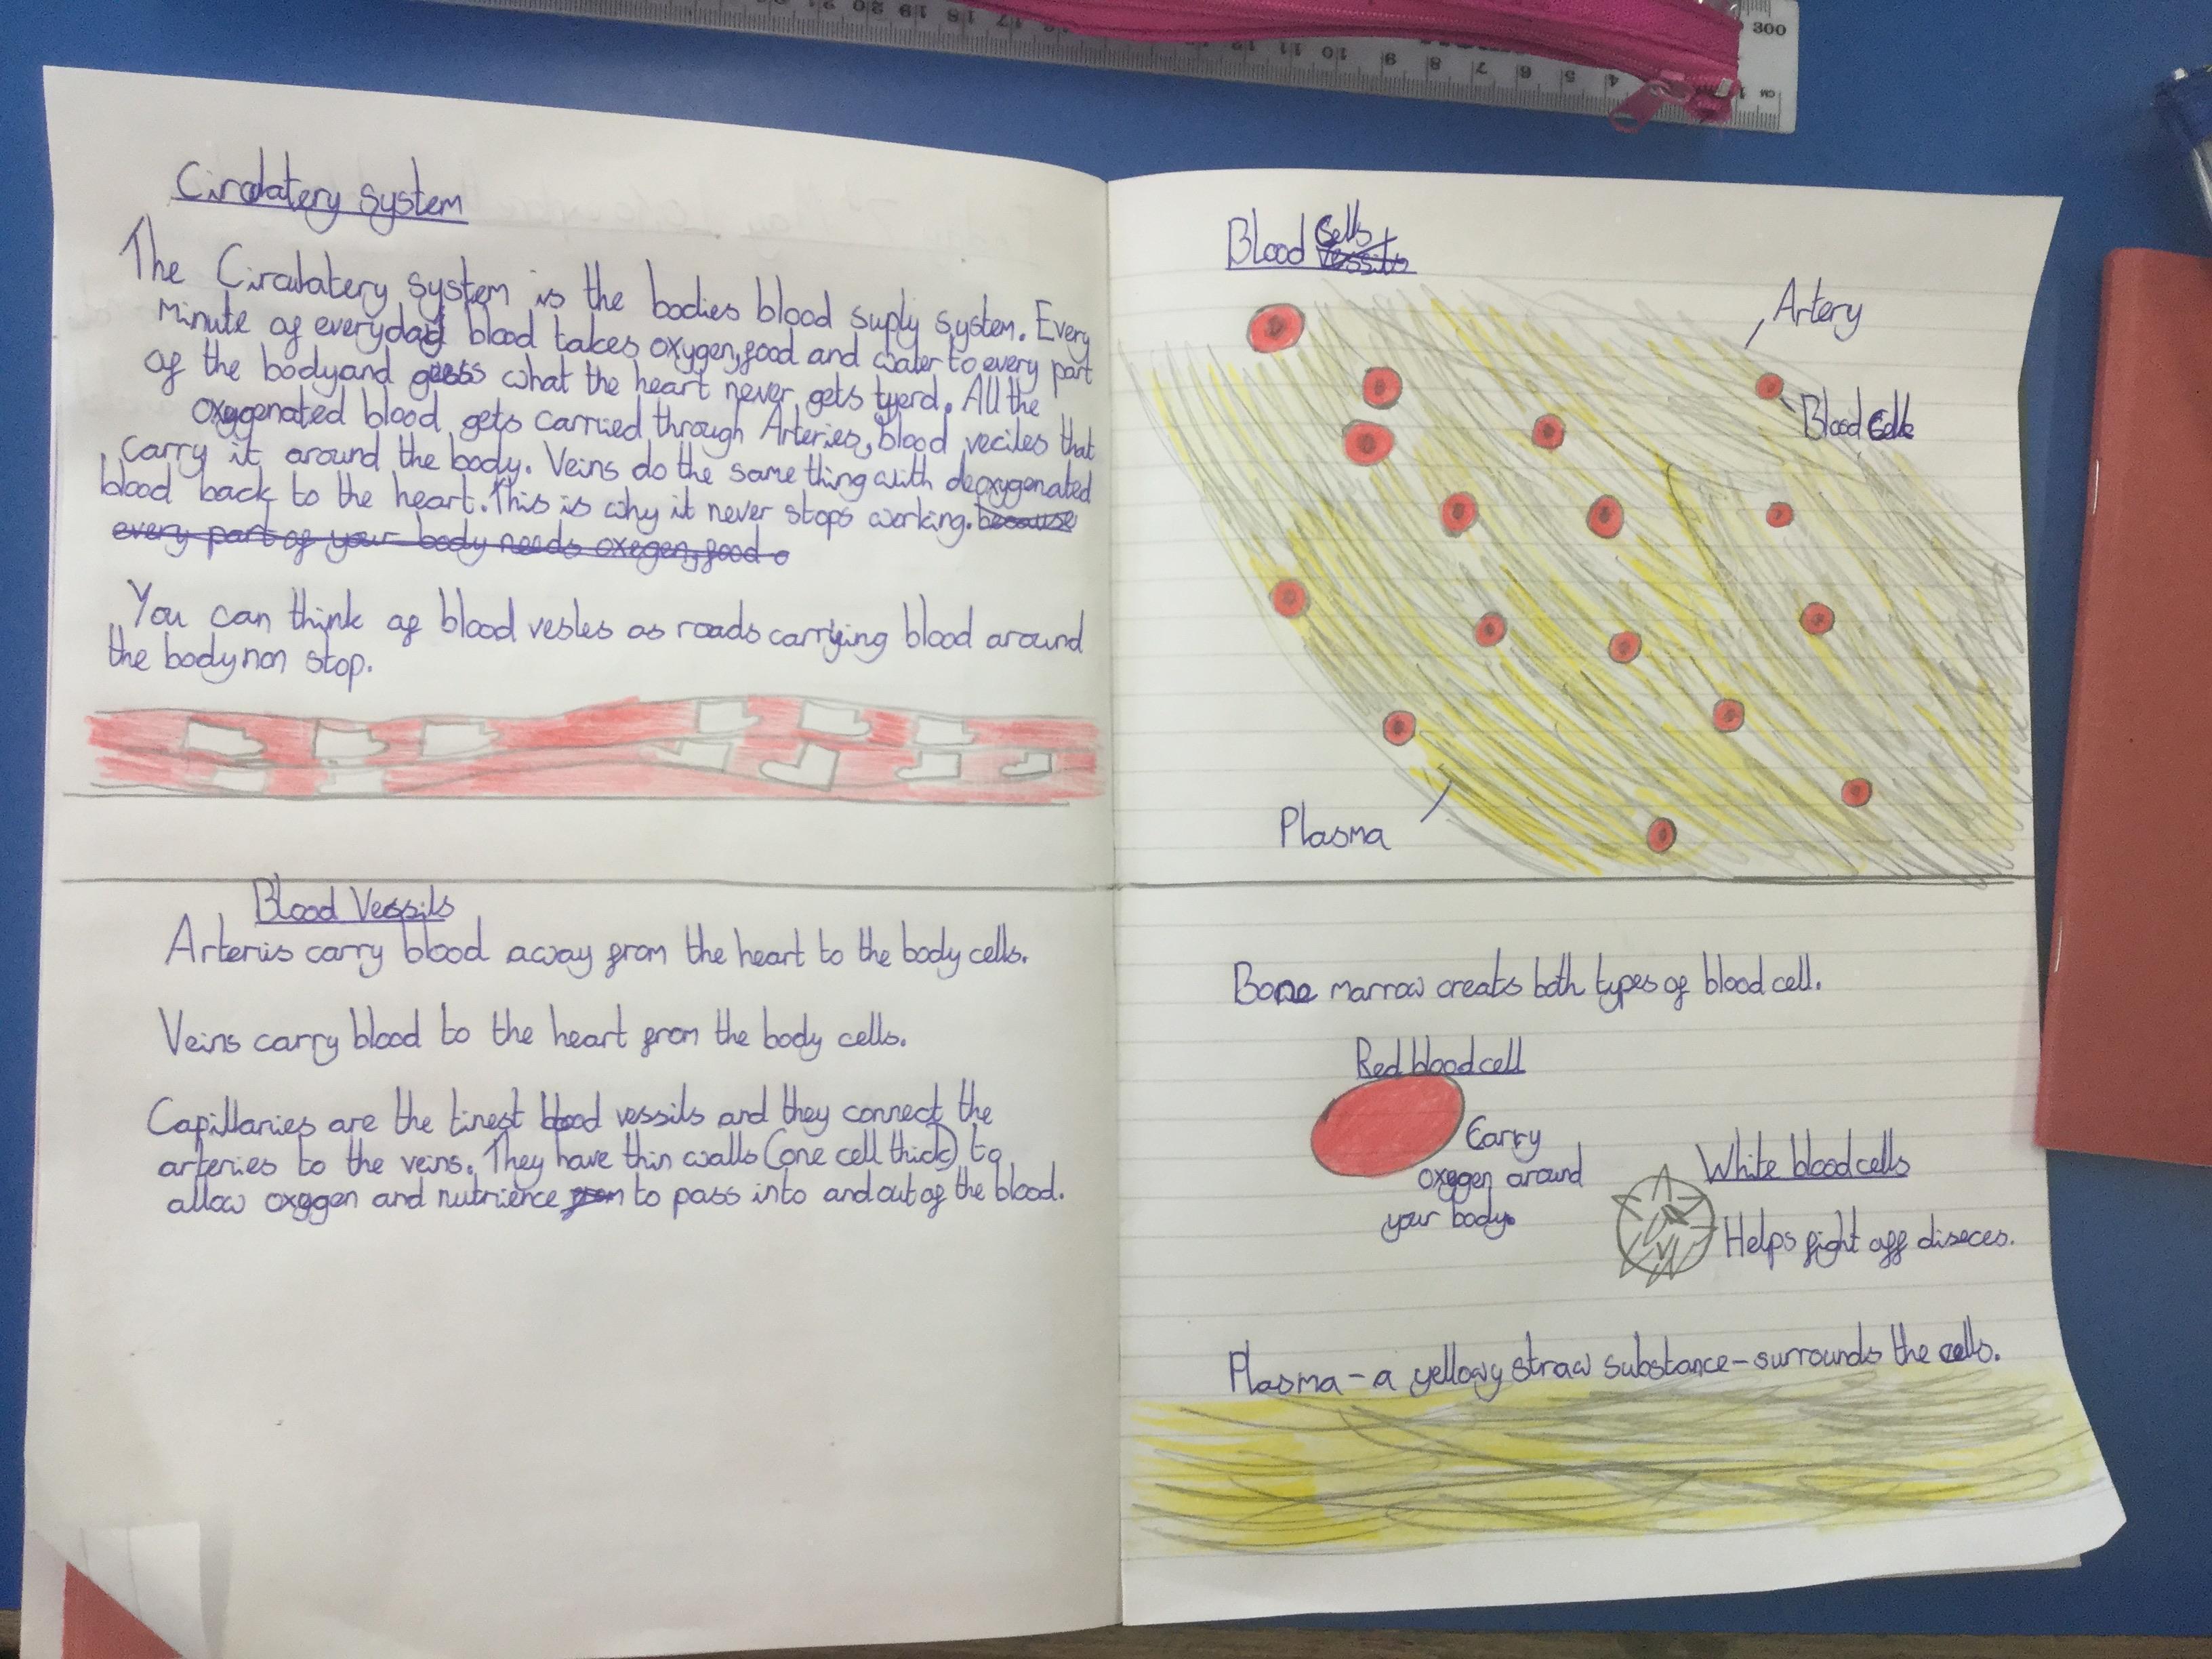 Circulatery system
The Circulatery system is the bodies blood suply system. Every
Minute of everyday blood takes oxygen, food and water to every part
of the body and guess what the heart never gets tyerd. All the
oxygenated blood gets carried through Arteries, blood veciles that
carry it around the body. Veins do the same thing with deoxygenated
blood back to the heart. This is why it never stops working. because
every part of your body needs oxegen, food
You can think of blood vesles as roads carrying blood around
the body non stop.
Blood Vessils
Arteriis carry blood away from the heart to the body cells.
Veins carry blood to the heart from the body cells.
Capillaries are the tinest blood vessils and they connect the
arteries to the veins. They have thin walls (one cell thick) to
allow oxygen and nutrience to pass into and out of the blood.
Blood Cells
Vessils
Artery
Blood Cells
Plasma
Bone marrow creats both types of blood cell.
Red blood cell
Carry
oxygen around
your body.
White blood cells
Helps fight off diseces.
Plasma - a yellowy straw substance - surrounds the cells.
300
20 19 18 17 12 11 10 9 8 7 6 5 4 1 CM